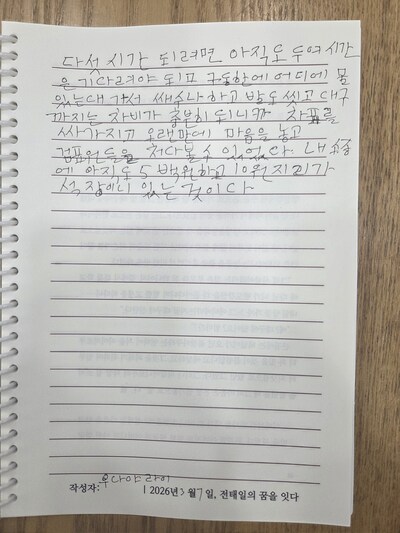 다섯시간 되려면 아직도 두여시간
은 기다려야 되고 구동한에 어디에 물
있는대 가서 쌔수나 하고 발도 씻고 대구
까지는 차비가 충분히 되니까 차표를
사가지고 오랜만에 마음을 놓고
검표원들을 처다볼수 있었다 내 호주머니
에 아직도 5백원하고 10원지리가
석장이나 있는 것이다
우다야 라이
작성자: | 2026년 3월 7일, 전태일의 꿈을 잇다